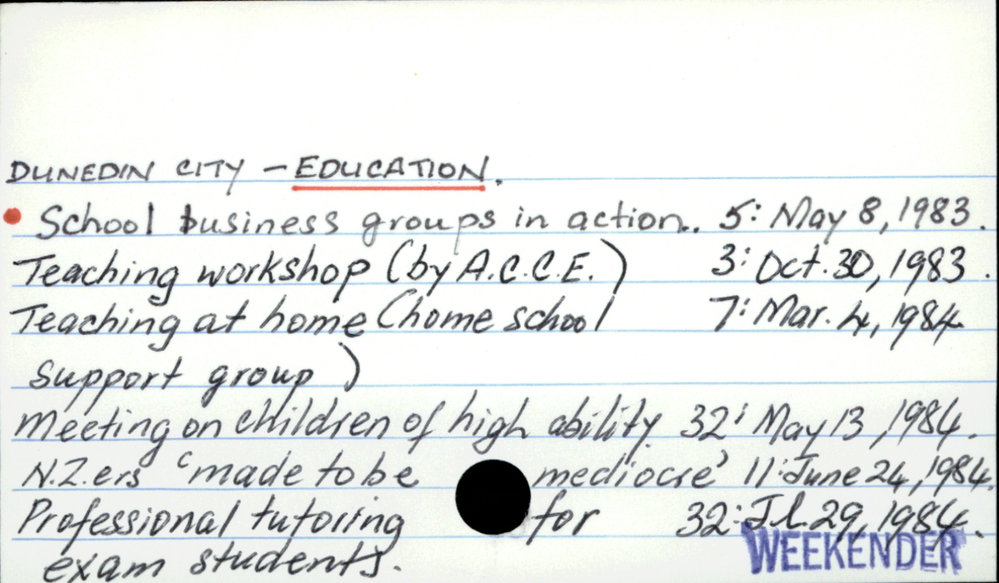 DUNEDIN CITY – EDUCATION.
• School business groups in action.. 5: May 8, 1983.
Teaching workshop (by A.C.C.E.) 3: Oct. 30, 1983.
Teaching at home (home school 7: Mar. 4, 1984.
support group)
Meeting on children of high ability. 32: May 13, 1984.
N.Z.ers 'made to be mediocre' 11: June 24, 1984.
Professional tutoring for 32: Jl. 29, 1984.
exam students.
WEEKENDER